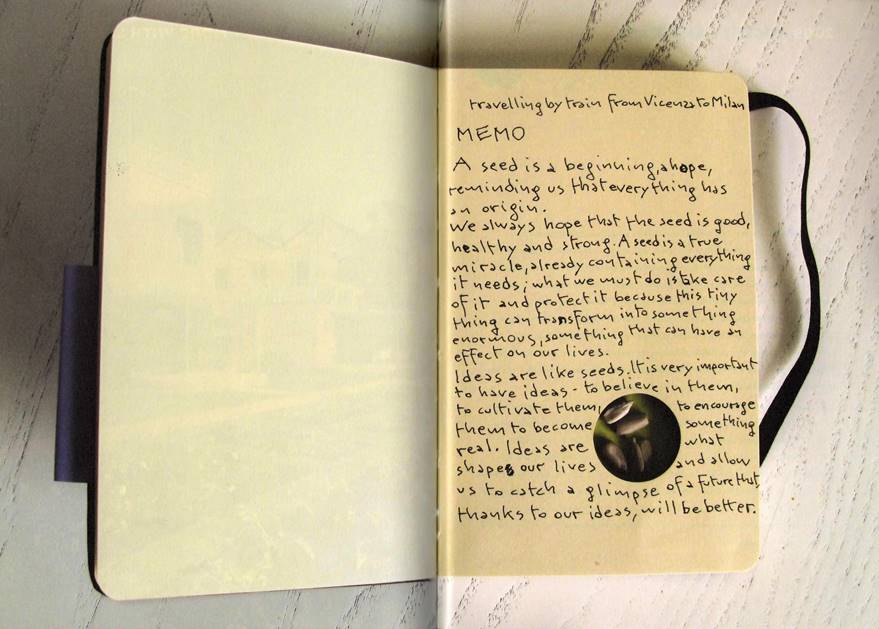 travelling by train from Vicenza to Milan
MEMO
A seed is a beginning, a hope,
reminding us that everything has
an origin.
We always hope that the seed is good,
healthy and strong. A seed is a true
miracle, already containing everything
it needs; what we must do is take care
of it and protect it because this tiny
thing can transform into something
enormous, something that can have an
effect on our lives.
Ideas are like seeds. It is very important
to have ideas - to believe in them,
to cultivate them, to encourage
them to become something
real. Ideas are what
shapes our lives and allow
us to catch a glimpse of a future that,
thanks to our ideas, will be better.